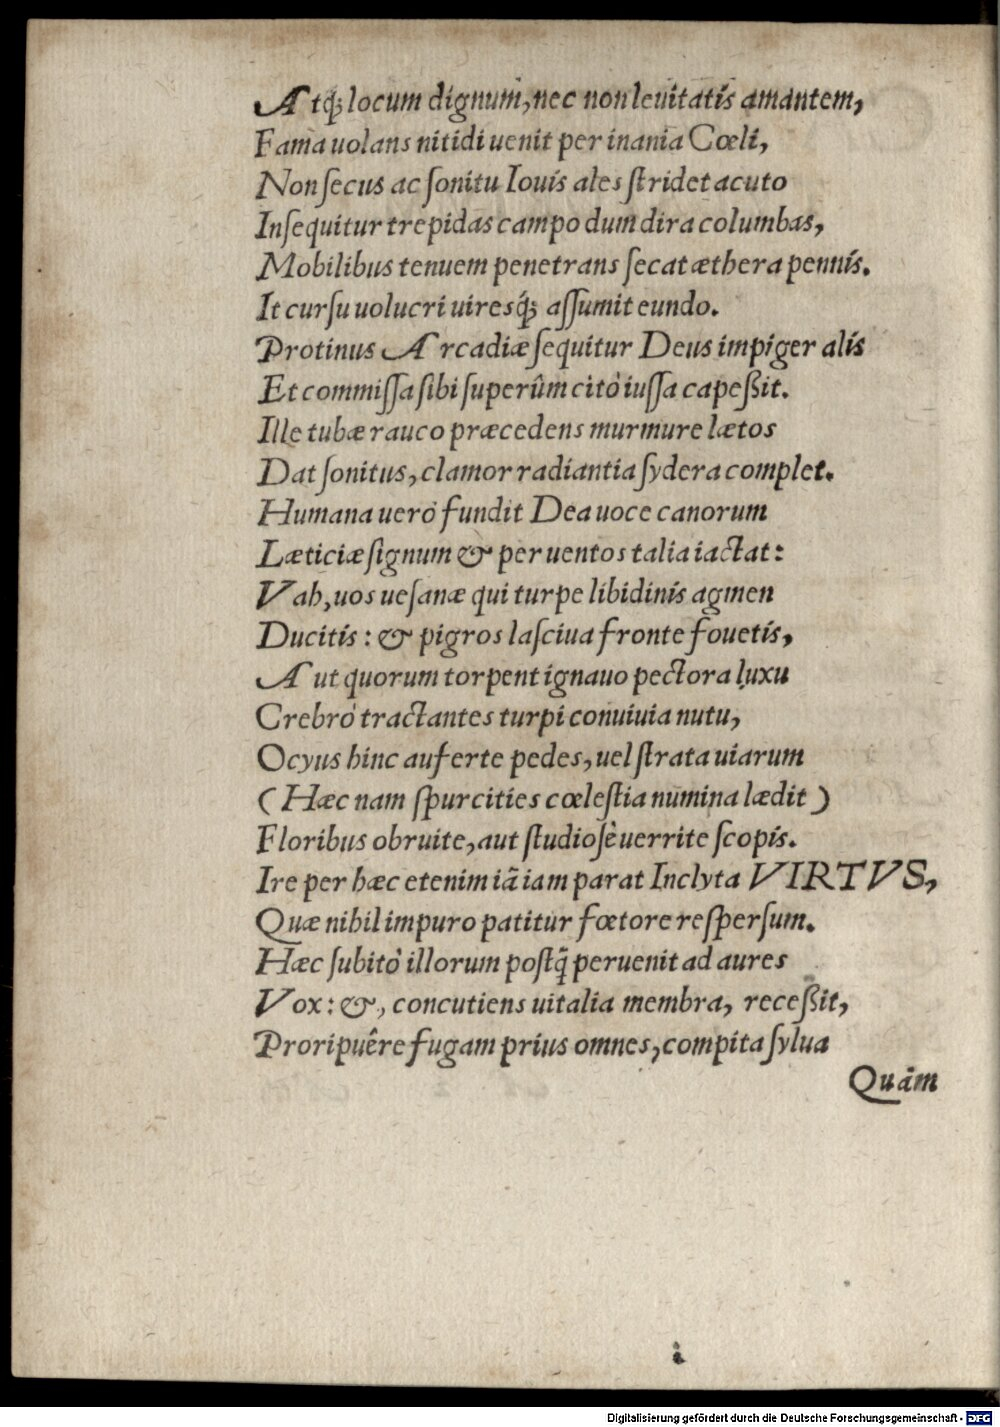 Atq́ꝫ locum dignum, nec non leuitatis amantem,
Fama uolans nitidi uenit per inania Cœli,
Non ſecus ac ſonitu Iouis ales ſtridet acuto
Inſequitur trepidas campo dum dira columbas,
Mobilibus tenuem penetrans ſecat æthera pennis.
It curſu uolucri uiresq́ꝫ aſſumit eundo.
Protinus Arcadiæ ſequitur Deus impiger alis
Et commiſſa ſibi ſuperûm citò iuſſa capeßit.
Ille tubæ rauco præcedens murmure lætos
Dat ſonitus, clamor radiantia ſydera complet.
Humana uerò fundit Dea uoce canorum
Læticiæ ſignum & per uentos talia iactat:
Vah, uos ueſanæ qui turpe libidinis agmen
Ducitis: & pigros laſciua fronte fouetis,
Aut quorum torpent ignauo pectora luxu
Crebrò tractantes turpi conuiuia nutu,
Ocyus hinc auferte pedes, uel ſtrata uiarum
(Hæc nam ſpurcities cœleſtia numina lædit)
Floribus obruite, aut ſtudioſè uerrite ſcopis.
Ire per hæc etenim iã iam parat Inclyta VIRTVS,
Quæ nihil impuro patitur fœtore reſperſum.
Hæc ſubitò illorum poſtq̃ peruenit ad aures
Vox: &, concutiens uitalia membra, receßit,
Proripuêre fugam prius omnes, compita ſylua
Quàm
Digitalisierung gefördert durch die Deutsche Forschungsgemeinschaft - DFG